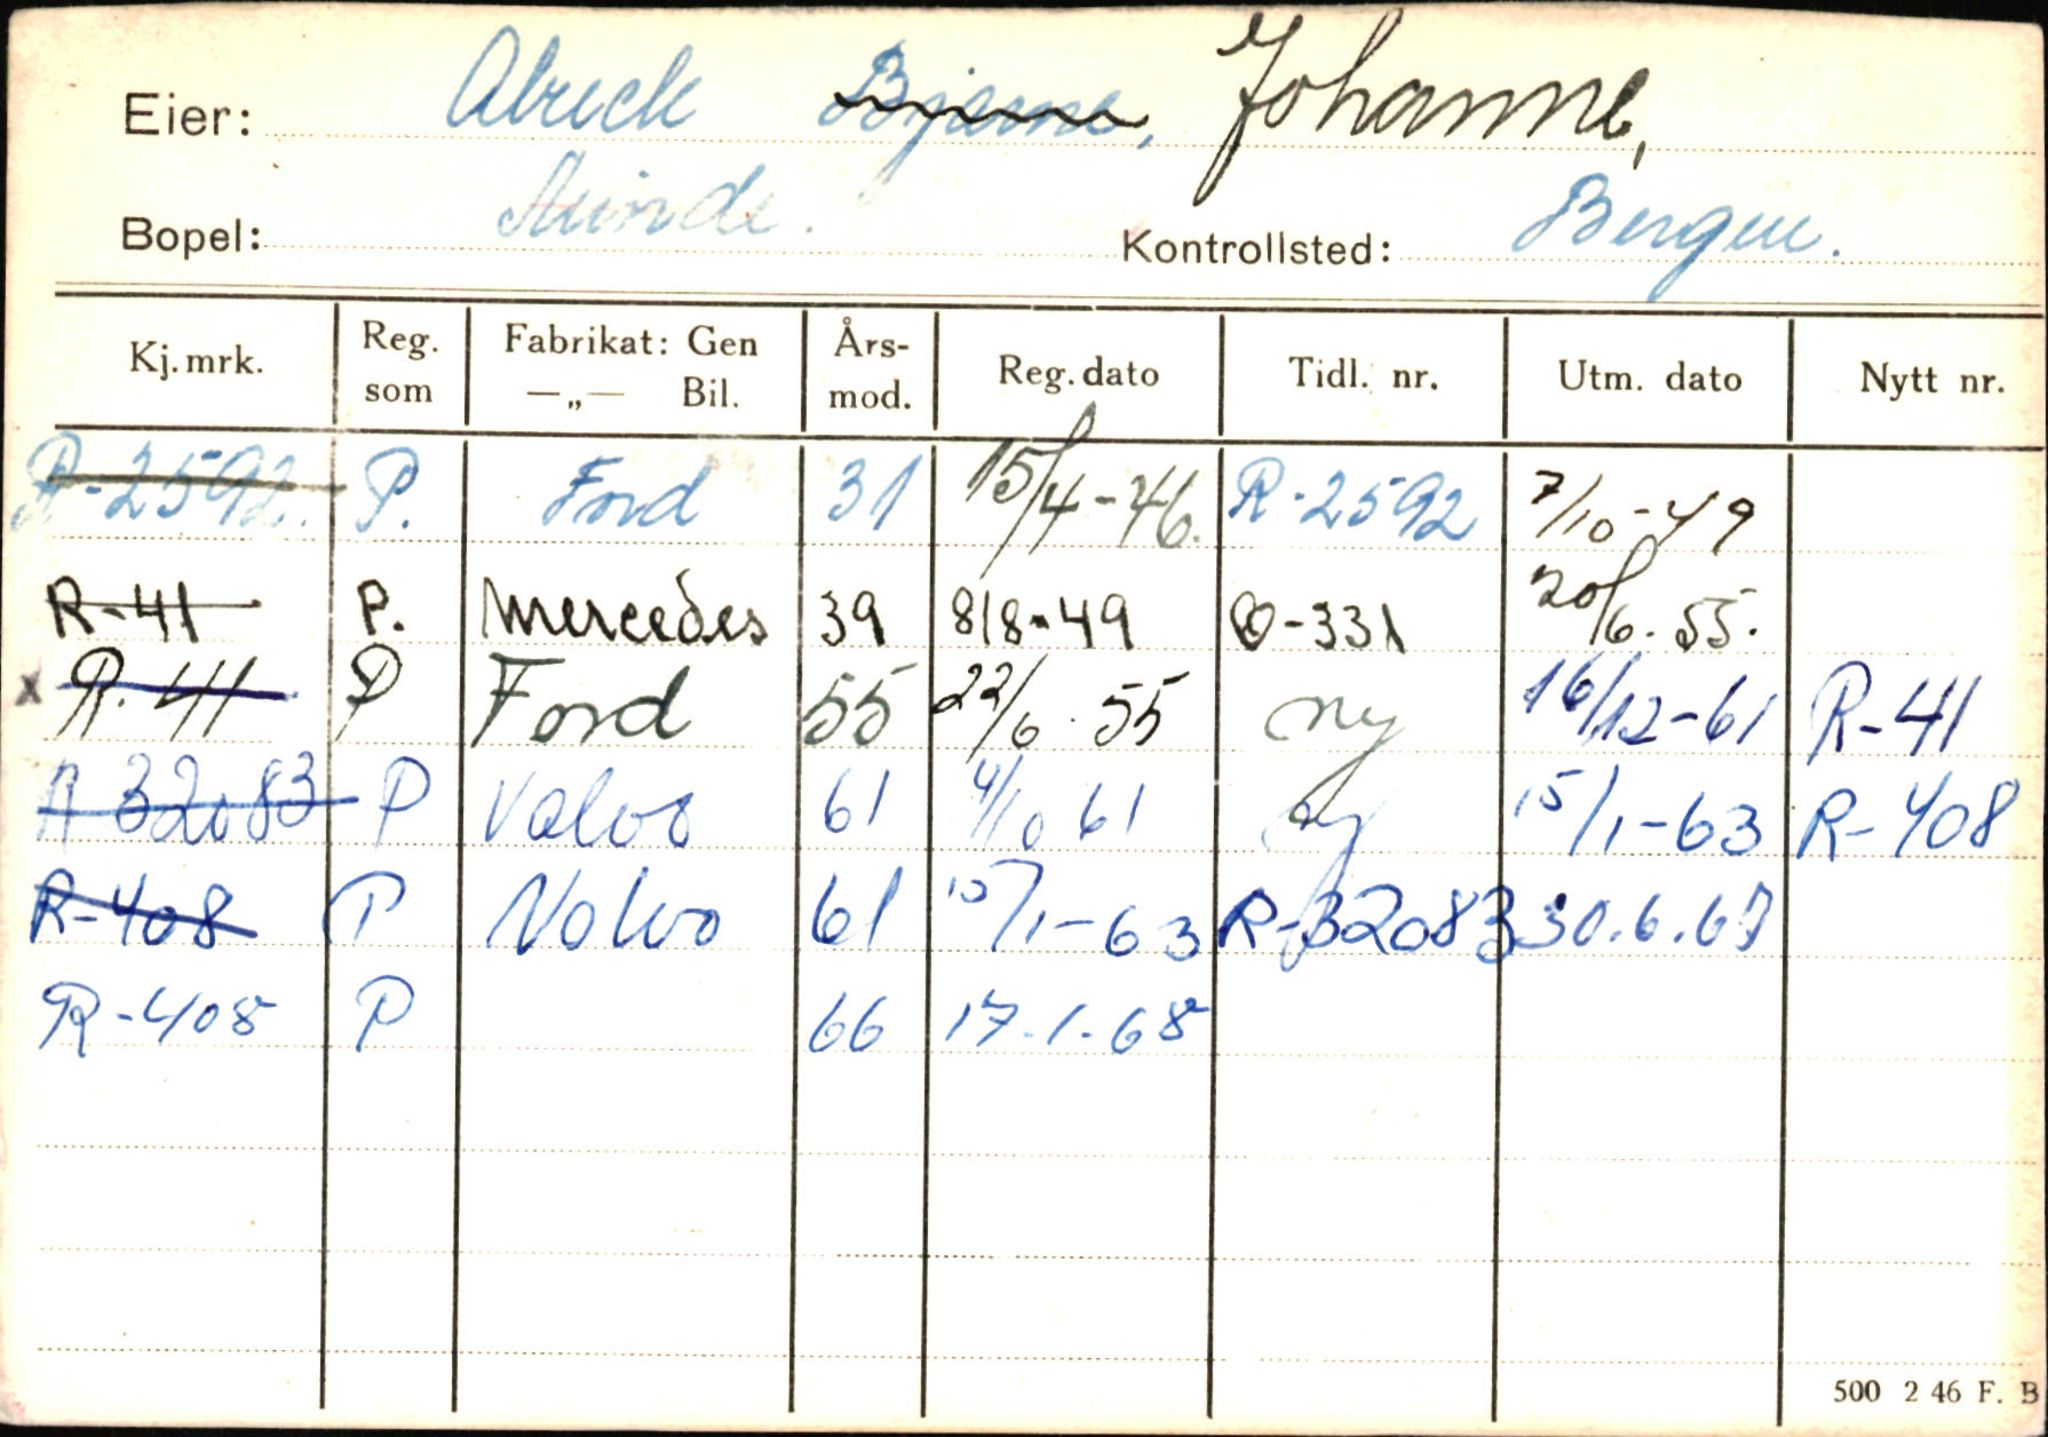 Eier: Alvick Bjarne, Johanne,
Bopel: Minde. Kontrollsted: Bergen.
Kj.mrk. Reg. som Fabrikat: Gen —„— Bil. Års- mod. Reg. dato Tidl. nr. Utm. dato Nytt nr.
R-2592. P. Ford 31 15/4-46. R-2592 7/10-49
R-41 P. Mercedes 39 8/8-49 O-331 20/6. 55.
x R. 41 P Ford 55 22/6. 55 ny 16/12-61 R-41
R 32083 P Volvo 61 4/10 61 ny 15/1-63 R-408
R-408 P Volvo 61 15/1-63 R-32083 30.6.67
R-408 P 66 17.1.68
500 2 46 F. B